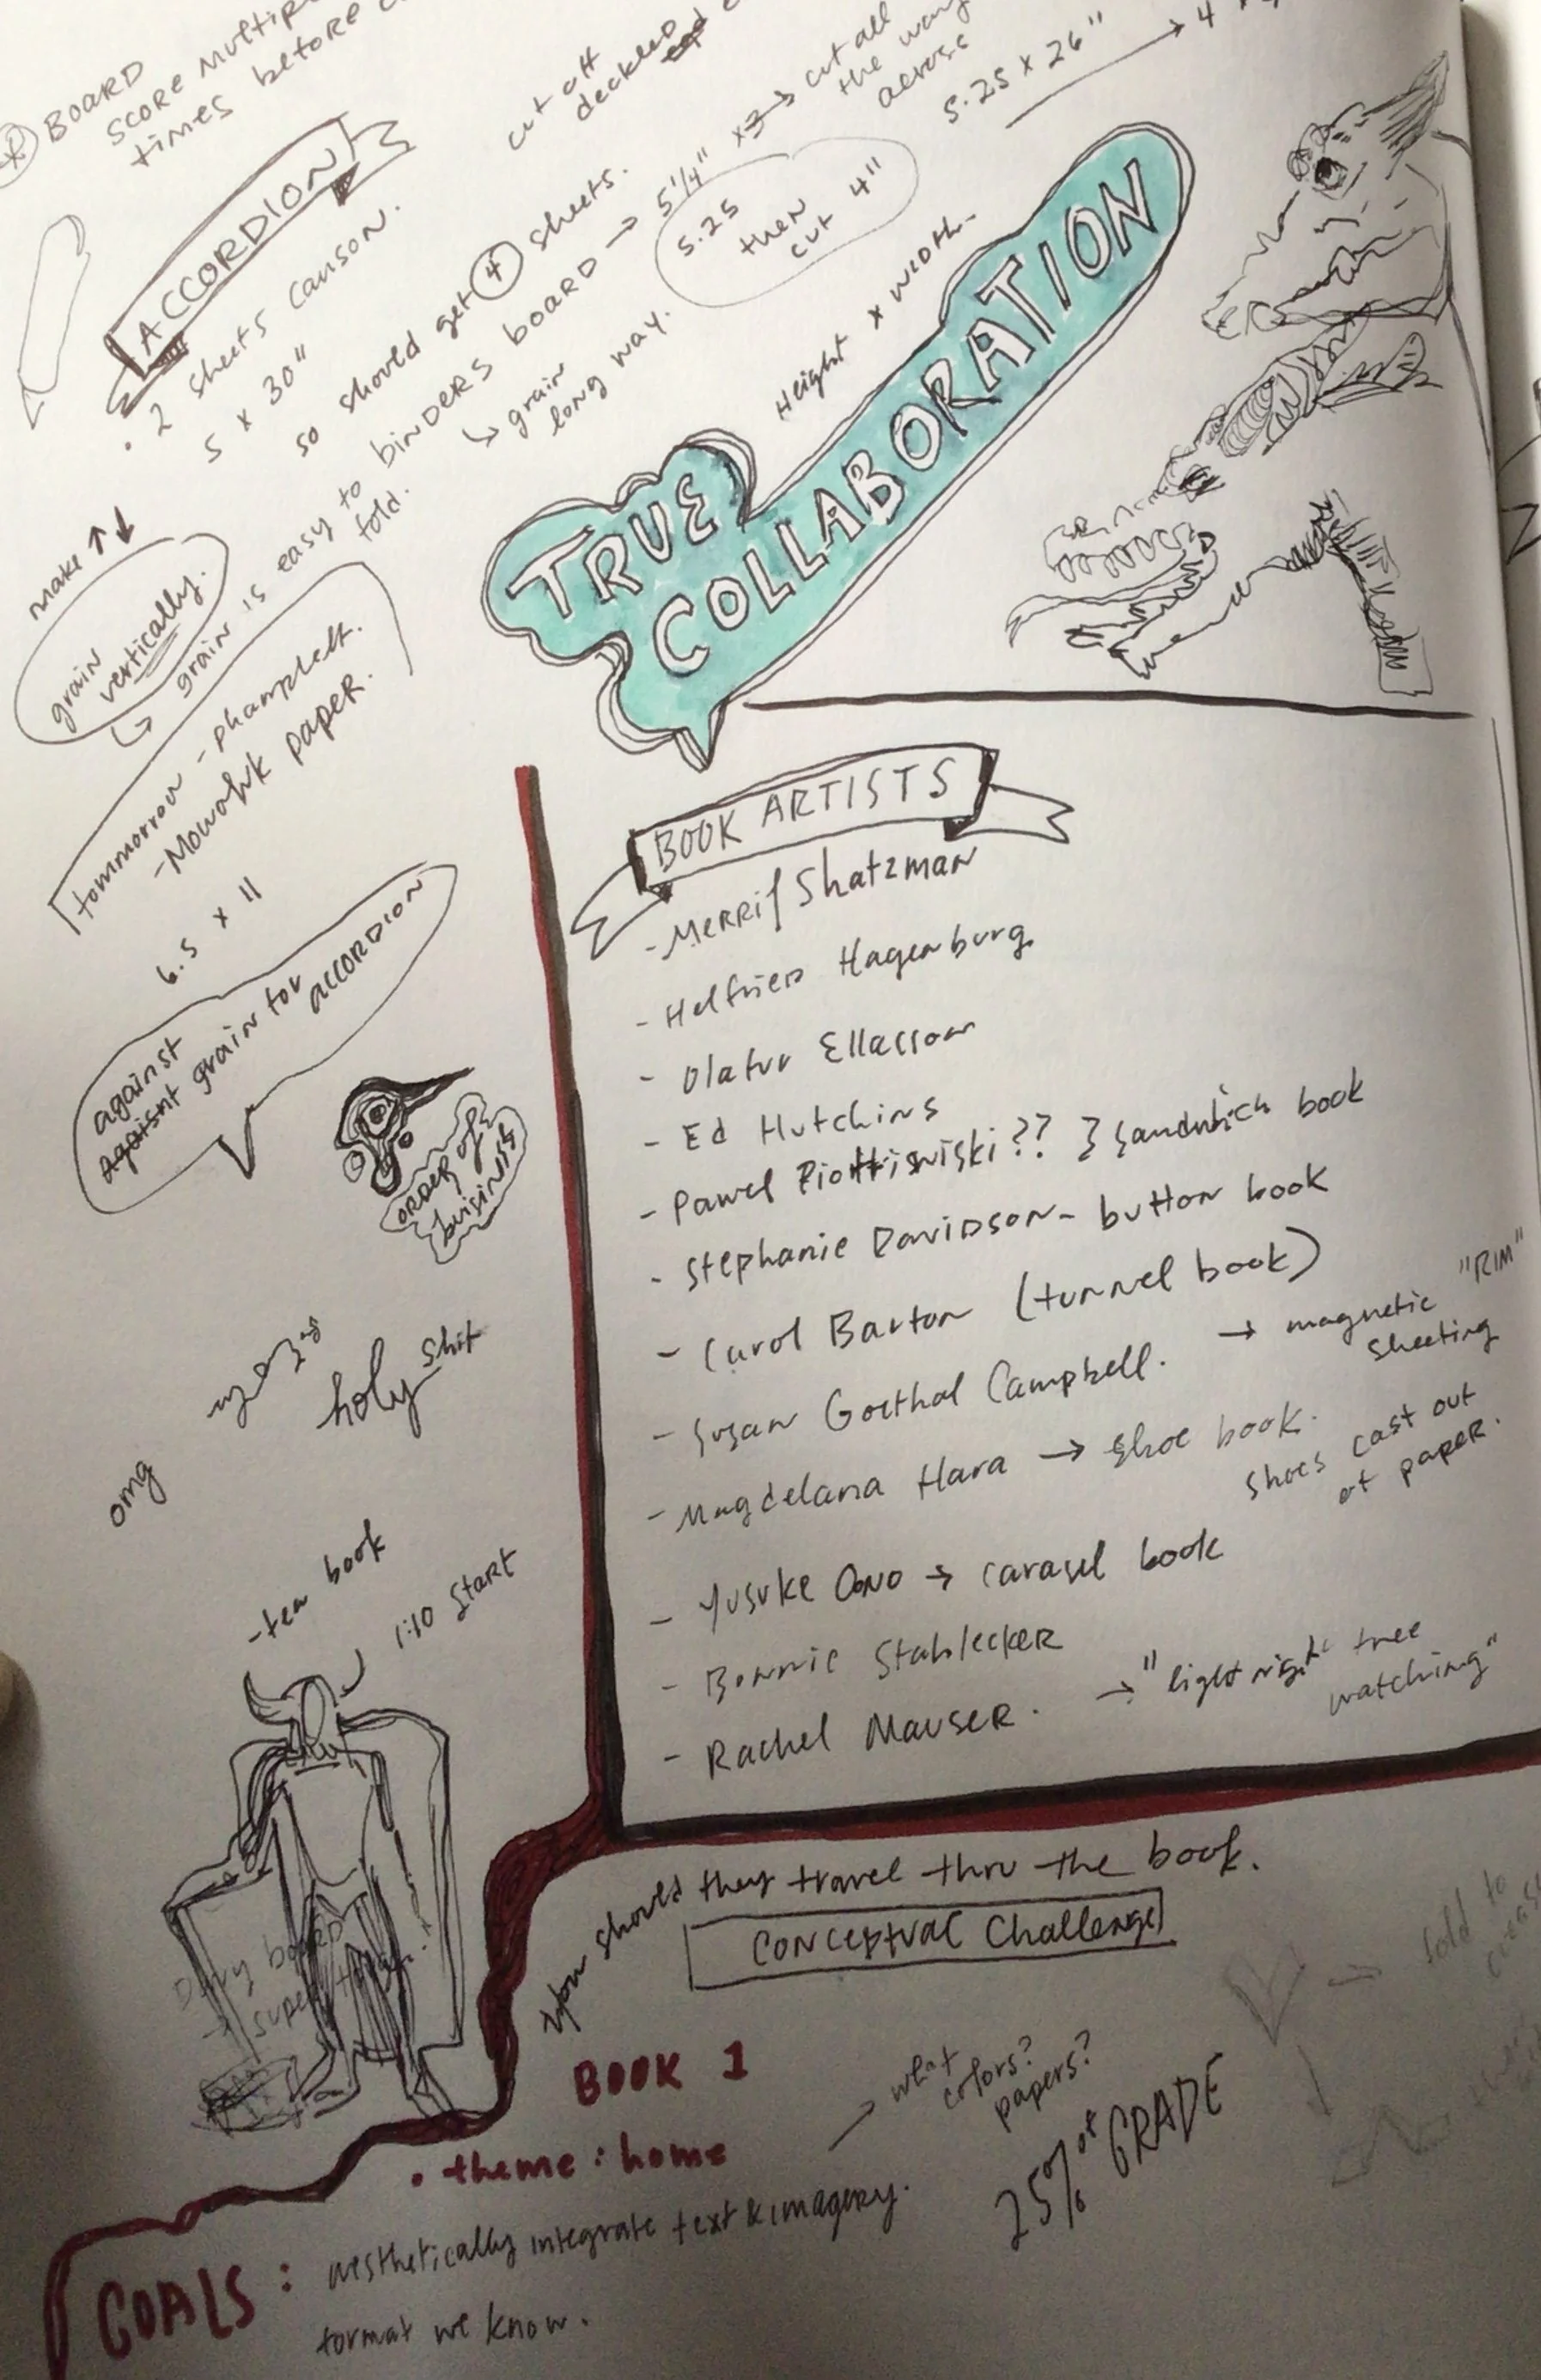 * BOARD
score multip
times before
ACCORDION
. 2 sheets canson.
5 x 30"
so should get 4 sheets.
binders board → 5 1/4"
↳ grain
long way.
cut off
deckled
x3 → cut all
the way
across
5.25
then
cut 4"
5.25 x 26" → 4
Height x width.
TRUE
COLLABORATION
make ↑↓
grain
vertically.
↳ grain is easy to
fold.
tommorrow - phamplett.
- Mowahk paper.
6.5 x 11
against
agaisnt grain for
accordion
order of
buisiniss
holy shit
omg
1:10 start
BOOK ARTISTS
- Merrif Shatzman
- Helfried Hagenburg
- Olafur Ellasson
- Ed Hutchins
- Pawel Piottiwiski?? } sandwich book
- Stephanie Davidson - button book
- Carol Barton (tunnel book)
- Susan Goethal Campbell. → magnetic "RIM"
sheeting
- Magdelana Hara → shoe book. shoes cast out
of paper.
- Yusuke Oono → carasel book
- Bonnie Stahlecker
- Rachel Mauser. → "light night tree
watching"
- tea book
should they travel thru the book.
Conceptual Challenge
Davy board
→ super tough.
fold to
BOOK 1
• theme: home
what
colors?
papers?
25% of GRADE
GOALS: aesthetically integrate text & imagery.
format we know.